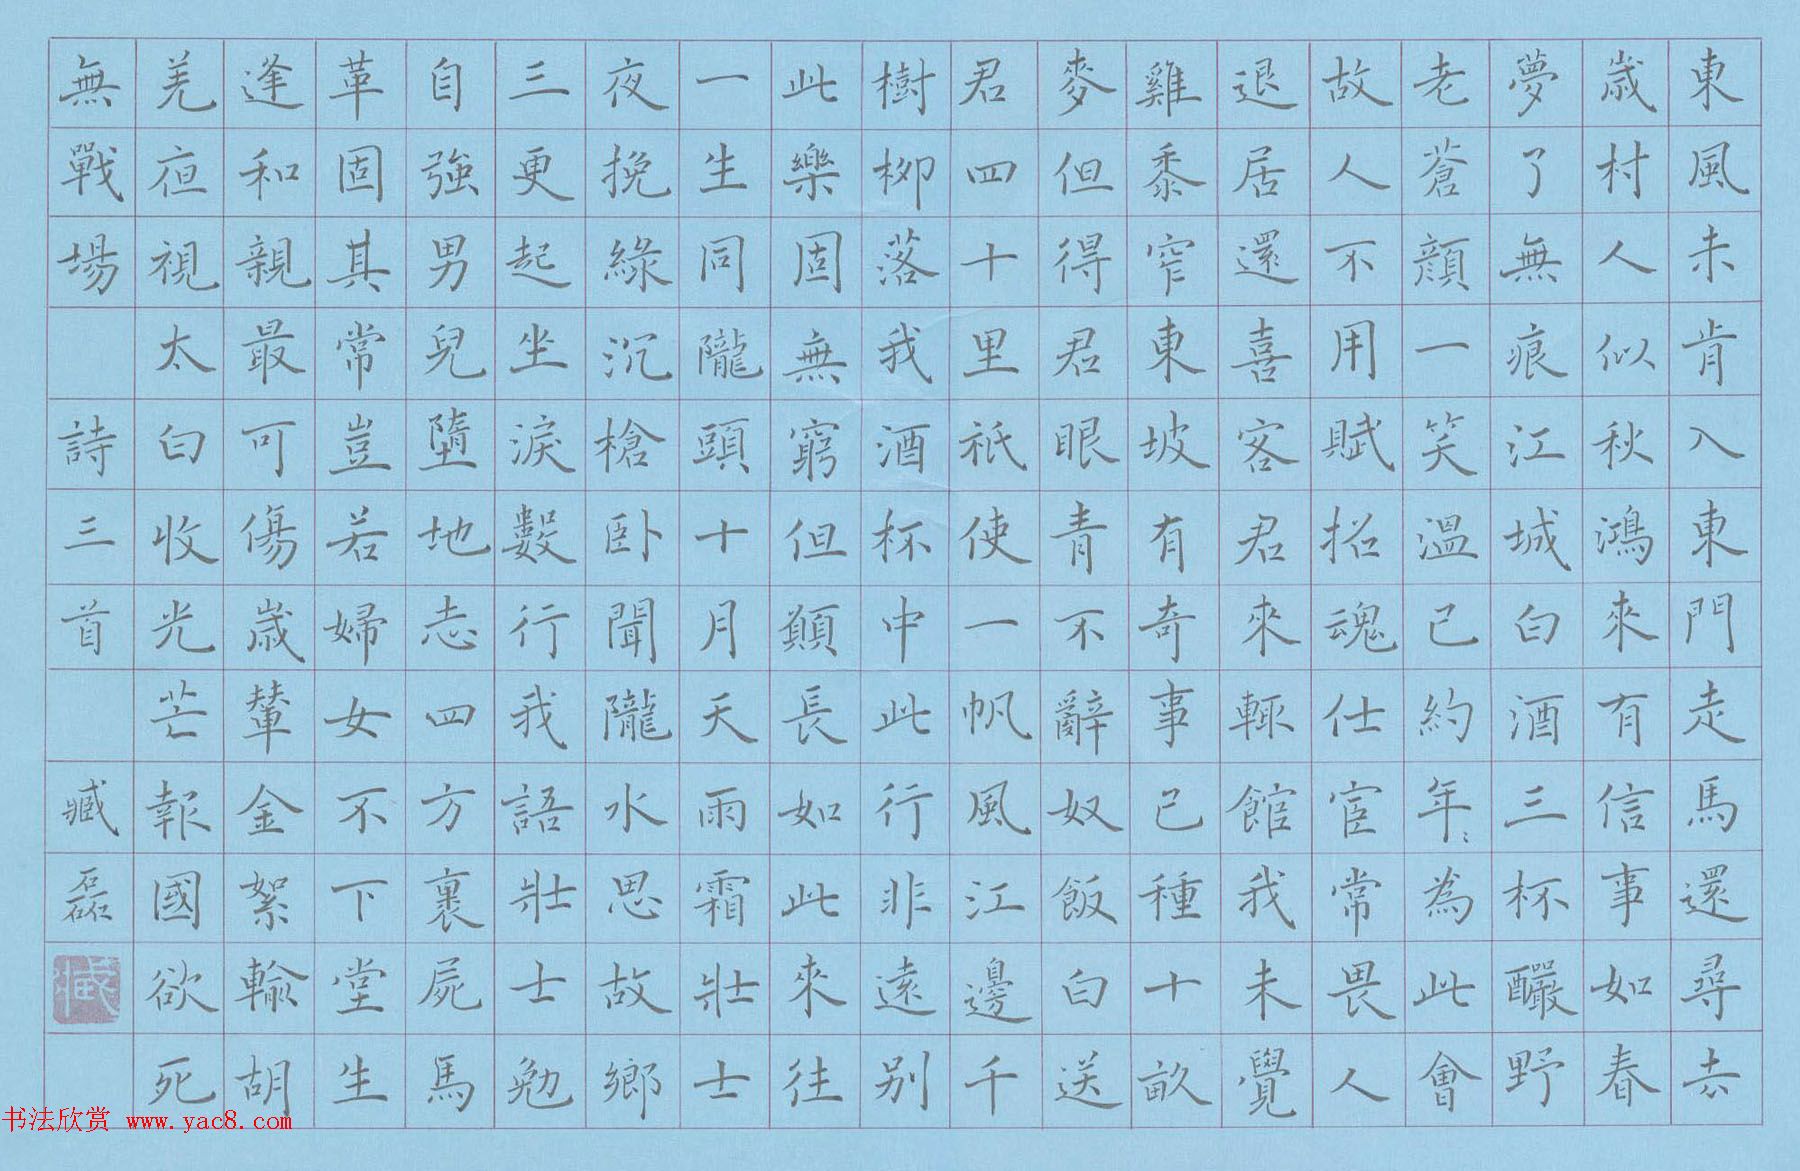 東風未肯入東門走馬還尋去
歲村人似秋鴻來有信事如春
夢了無痕江城白酒三杯釅野
老蒼顏一笑溫已約年〻為此會
故人不用賦招魂仕宦常畏人
退居還喜客君來輒館我未覺
雞黍窄東坡有奇事已種十畝
麥但得君眼青不辭奴飯白送
君四十里祇使一帆風江邊千
樹柳落我酒杯中此行非遠別
此樂固無窮但願長如此來往
一生同隴頭十月天雨霜壯士
夜挽綠沉槍卧聞隴水思故鄉
三更起坐淚數行我語壯士勉
自強男兒墮地志四方裹屍馬
革固其常豈若婦女不下堂生
逢和親最可傷歲輦金絮輸胡
羌夜視太白收光芒報國欲死
無戰場 詩三首 臧磊
臧
书法欣赏 www.yac8.com